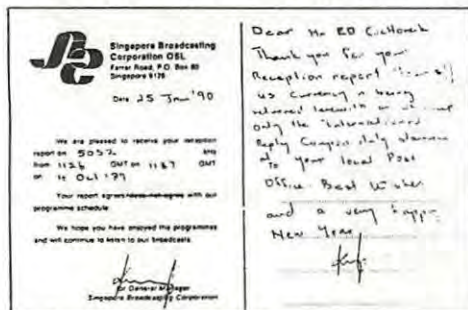 SBC
Singapore Broadcasting
Corporation OSL
Farrer Road, P.O. Box 60
Singapore 9128
Date 25 Jan '90
We are pleased to receive your reception
report on 5052 kHz
from 1126 GMT to 1137 GMT
on
Your report agrees/does not agree with our
programme schedule.
We hope you have enjoyed the programmes
and will continue to listen to our broadcasts.
for General Manager
Singapore Broadcasting Corporation
Dear Mr ED
Thank you for your
Reception report
US Currency is being
returned herewith
only the International
Reply Coupon duly
at your local Post
Office. Best wishes
and a very happy
New Year